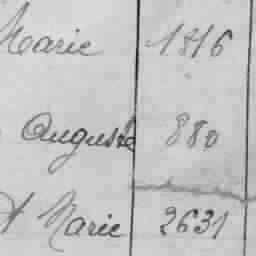 Marie 1816
Auguste 880
Marie 2631